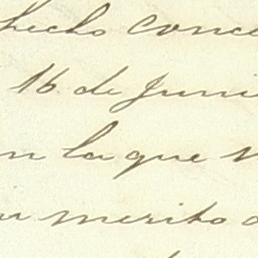 hecho conce
16 de Juni
en la que
merito